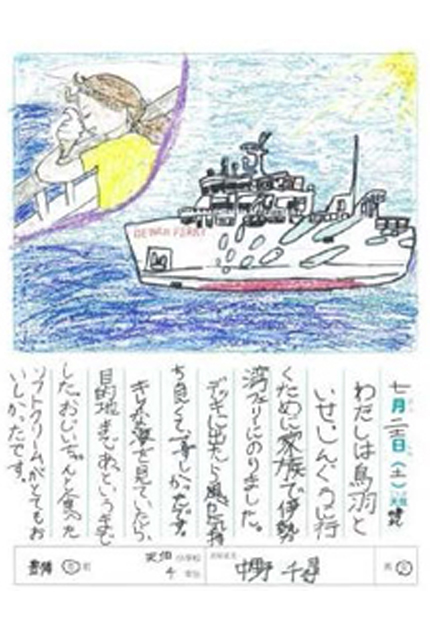 ISEWAN FERRY
七月二十日(土)
わたしは鳥羽と
いせじんぐうに行
くために家族で伊勢
湾フェリーにのりました。
デッキに出たら風が気持
ち良くて、楽しかったです。
きれいな海を見ていたら、
目的地まであっというまで
した。おじいちゃんと食べた
ソフトクリームがとてもお
いしかったです。
小学校
4 年生
中野 千尋